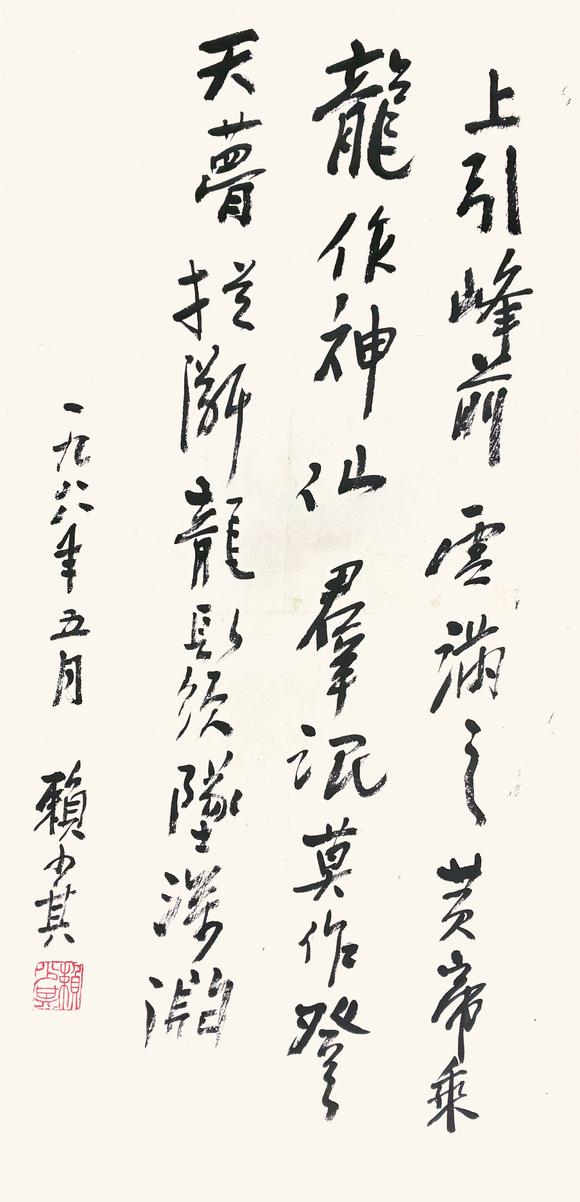 上引峰前雲滿之黄帝乘
龍作神仙羣氓莫作登
天夢斷龍鬚墜深淵
一九八六年五月 賴少其
賴少其